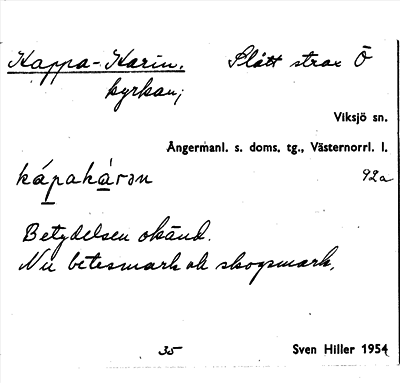 Kappa-Karin. Slått strax Ö
kyrkan;
Viksjö sn.
Ångermanl. s. doms. tg., Västernorrl. l.
kápakàrən 92a
Betydelsen okänd.
Nu betesmark ok skogsmark.
35 Sven Hiller 1954